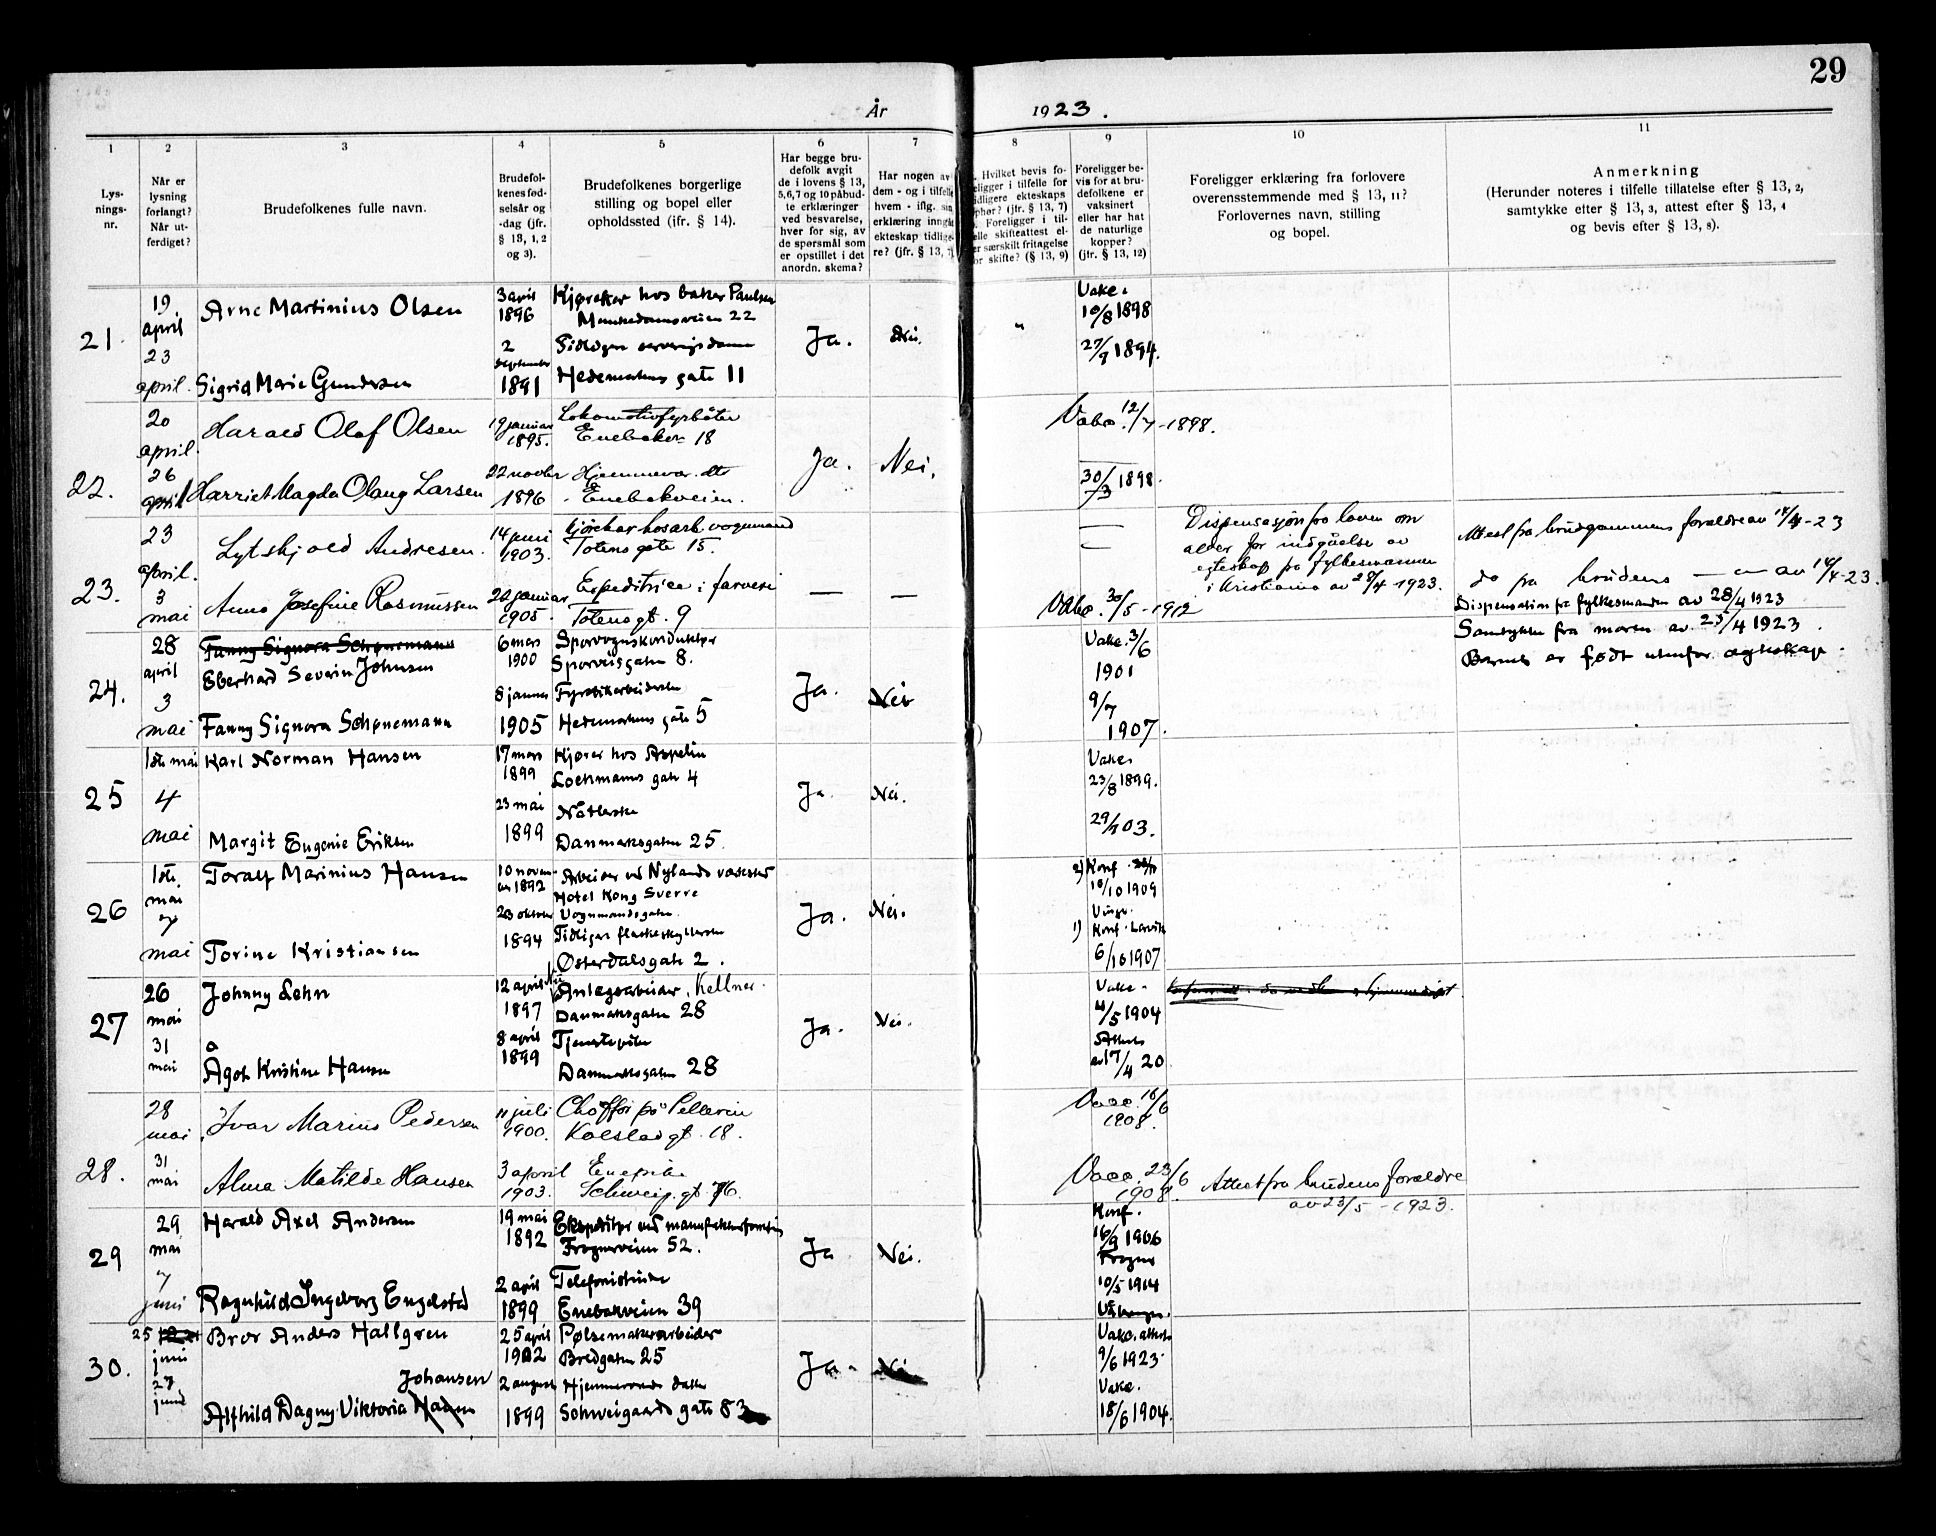 29
År 1923.
1 2 3 4 5 6 7 8 9 10 11
Lys-
nings-
nr.
Når er
lysning
forlangt?
Når ut-
ferdiget?
Brudefolkenes fulle navn.
Brudefol-
kenes fød-
selsår og
-dag (jfr.
§ 13, 1, 2
og 3).
Brudefolkenes borgerlige
stilling og bopel eller
opholdssted (jfr. § 14).
Har begge bru-
defolk avgit
de i lovens § 13,
5,6,7 og 10 påbud-
te erklæringer
ved besvarelse,
hver for sig, av
de spørsmål som
er opstillet i det
anordn. skema?
Har nogen av
dem - og i tilfelle
hvem - iflg. sin
erklæring inngå
ekteskap tidlige-
re? (jfr. § 13, 7)
Hvilket bevis fo-
religger i tilfelle for
tidligere ekteskaps
ophør? (jfr. § 13, 7)
Foreligger i til-
felle skifteattest el-
er særskilt fritagelse
for skifte? (§ 13, 9)
Foreligger be-
vis for at bru-
defolkene er
vaksinert
eller har hat
de naturlige
kopper?
(jfr. § 13, 12)
Foreligger erklæring fra forlovere
overensstemmende med § 13, 11?
Forlovernes navn, stilling
og bopel.
Anmerkning
(Herunder noteres i tilfelle tillatelse efter § 13, 2,
samtykke efter § 13, 3, attest efter § 13, 4
og bevis efter § 13, 8).
21.
19. april
23 april.
Arne Martinius Olsen
3 april 1896
Kjørekar hos baker Paulsen
Munkedamsveien 22
Sigrid Marie Gundersen
2 september 1891
Tidligere serveringsdame
Hedemarkens gate 11
Ja. Nei. "
Vakc. 10/8 1898
27/9 1894.
22.
20 april.
26 april
Harald Olaf Olsen
19 januar 1895.
Lokomotivfyrbøter
Enebakkv 18
Harriet Magda Olaug Larsen
22 novbr 1896
Hjemmevær. dtr
Enebakveien.
Ja. Nei.
Vabo. 12/7 - 1898.
30/3 1898.
23.
23 april.
3 mai
Lytskjold Andresen.
14 juni 1903.
Kjørekar hos arb. vognmand
Totens gate 15.
Anna Josefine Rasmussen
22 januar 1905.
Expeditrice i farveri
Totensgt. 9
— —
Vabo. 30/5 - 1912
Dispensasjon fra loven om
alder for indgåelse av
egteskap fra fylkesmannen
i Kristiania av 28/4 1923.
Attest fra brudgommens foreldre av 14/4 - 23
do fra brudens — " — av 14/4 - 23.
Dispensasion fra fylkesmanden av 28/4 1923
24.
28 april
3 mai
Fanny Signora Schønemann
Eberhard Severin Johnsen
6 mars 1900
Sporvognskonduktør
Sporveisgaten 8.
Fanny Signora Schønemann
8 januar 1905
Fyrstikarbeiderske
Hedemarkens gate 5
Ja. Nei
Vakc. 3/6 1901
9/7 1907.
Samtykke fra moren av 23/4 1923.
Barnet er født utenfor ægteskap.
25
1ste mai
4 mai
Karl Norman Hansen
17 mars 1899
Kjører hos Aspelin
Lochmanns gate 4
Margit Eugenie Eriksen
23 mai 1899
Nåtleske
Danmarksgaten 25.
Ja. Nei.
Vakc. 23/8 1899.
29/9 03.
26
1ste. mai
7 mai
Toralf Marinius Hansen
10 november 1892
Arbeider ved Nylands værksted
Hotel Kong Sverre
Vognmandsgaten.
Torine Kristiansen
23 oktober 1894
Tidligere flaskeskyllerske
Østerdalsgate 2.
Ja. Nei.
2) Konf.
10/10 1909
1) Konf. Larvik
6/10 1907
27
26 mai
31 mai
Johnny Lohn
12 april 1897
Anlægsarbeider, Kellner.
Danmarksgaten 28
Ågot Kristine Hansen
8 april 1899
Tjenestepike
Danmarksgaten 28
Ja. Nei.
Vakc. 4/5 1904
Attest
av 17/4 20
28.
28 mai
31 mai
Ivar Marius Pedersen
11 juli 1900.
Chaffør på Pellerin
Kolstadgt. 18.
Alma Matilde Hansen
3 april 1903.
Enepike
Schweig. gt 76.
Vacc. 16/6 1908.
Vacc. 23/6 1908.
Attest fra brudens foreldre
av 23/5 - 1923.
29
29 mai
7 juni
Harald Axel Andersen
19 mai 1892
Ekspeditør ved manufakturforretning
Frognerveien 52.
Ragnhild Ingeborg Engelstad
2 april 1899
Telefonistinde
Enebakveien 39
Ja Nei.
Konf. 16/9 1906
Frogner
10/5 1914
30.
25 juni
27 juni
Bror Anders Hallgren
25 april 1902
Pølsemakerarbeider
Bredgaten 25
Johansen
Alfhild Dagny Viktoria
2 august 1899
Hjemmeværende datter
Schweigaards gate 83
Ja. Nei
Vakc. attest
9/6 1923.
Vakc.
18/6 1904.